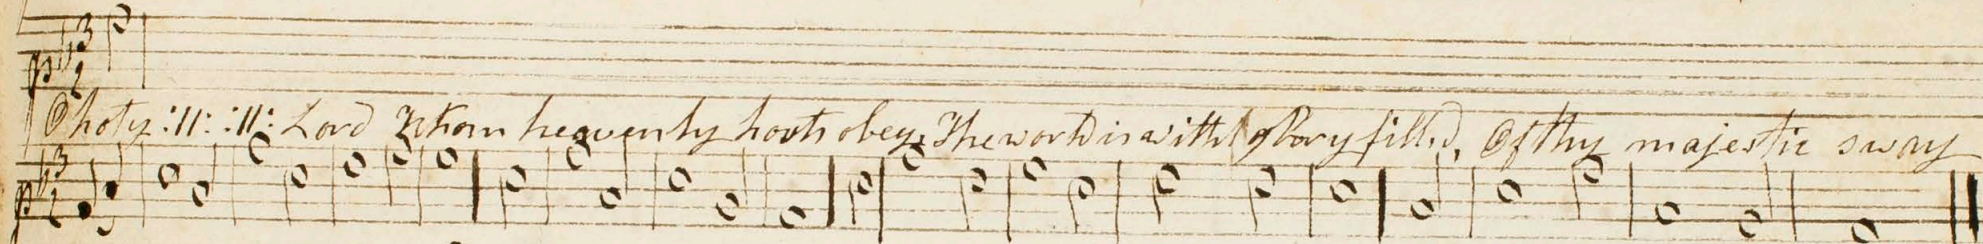 3
2
O holy :||: :||: Lord Whom heavenly hosts obey, The world is with glory filled, Of thy majestic sway
3
2